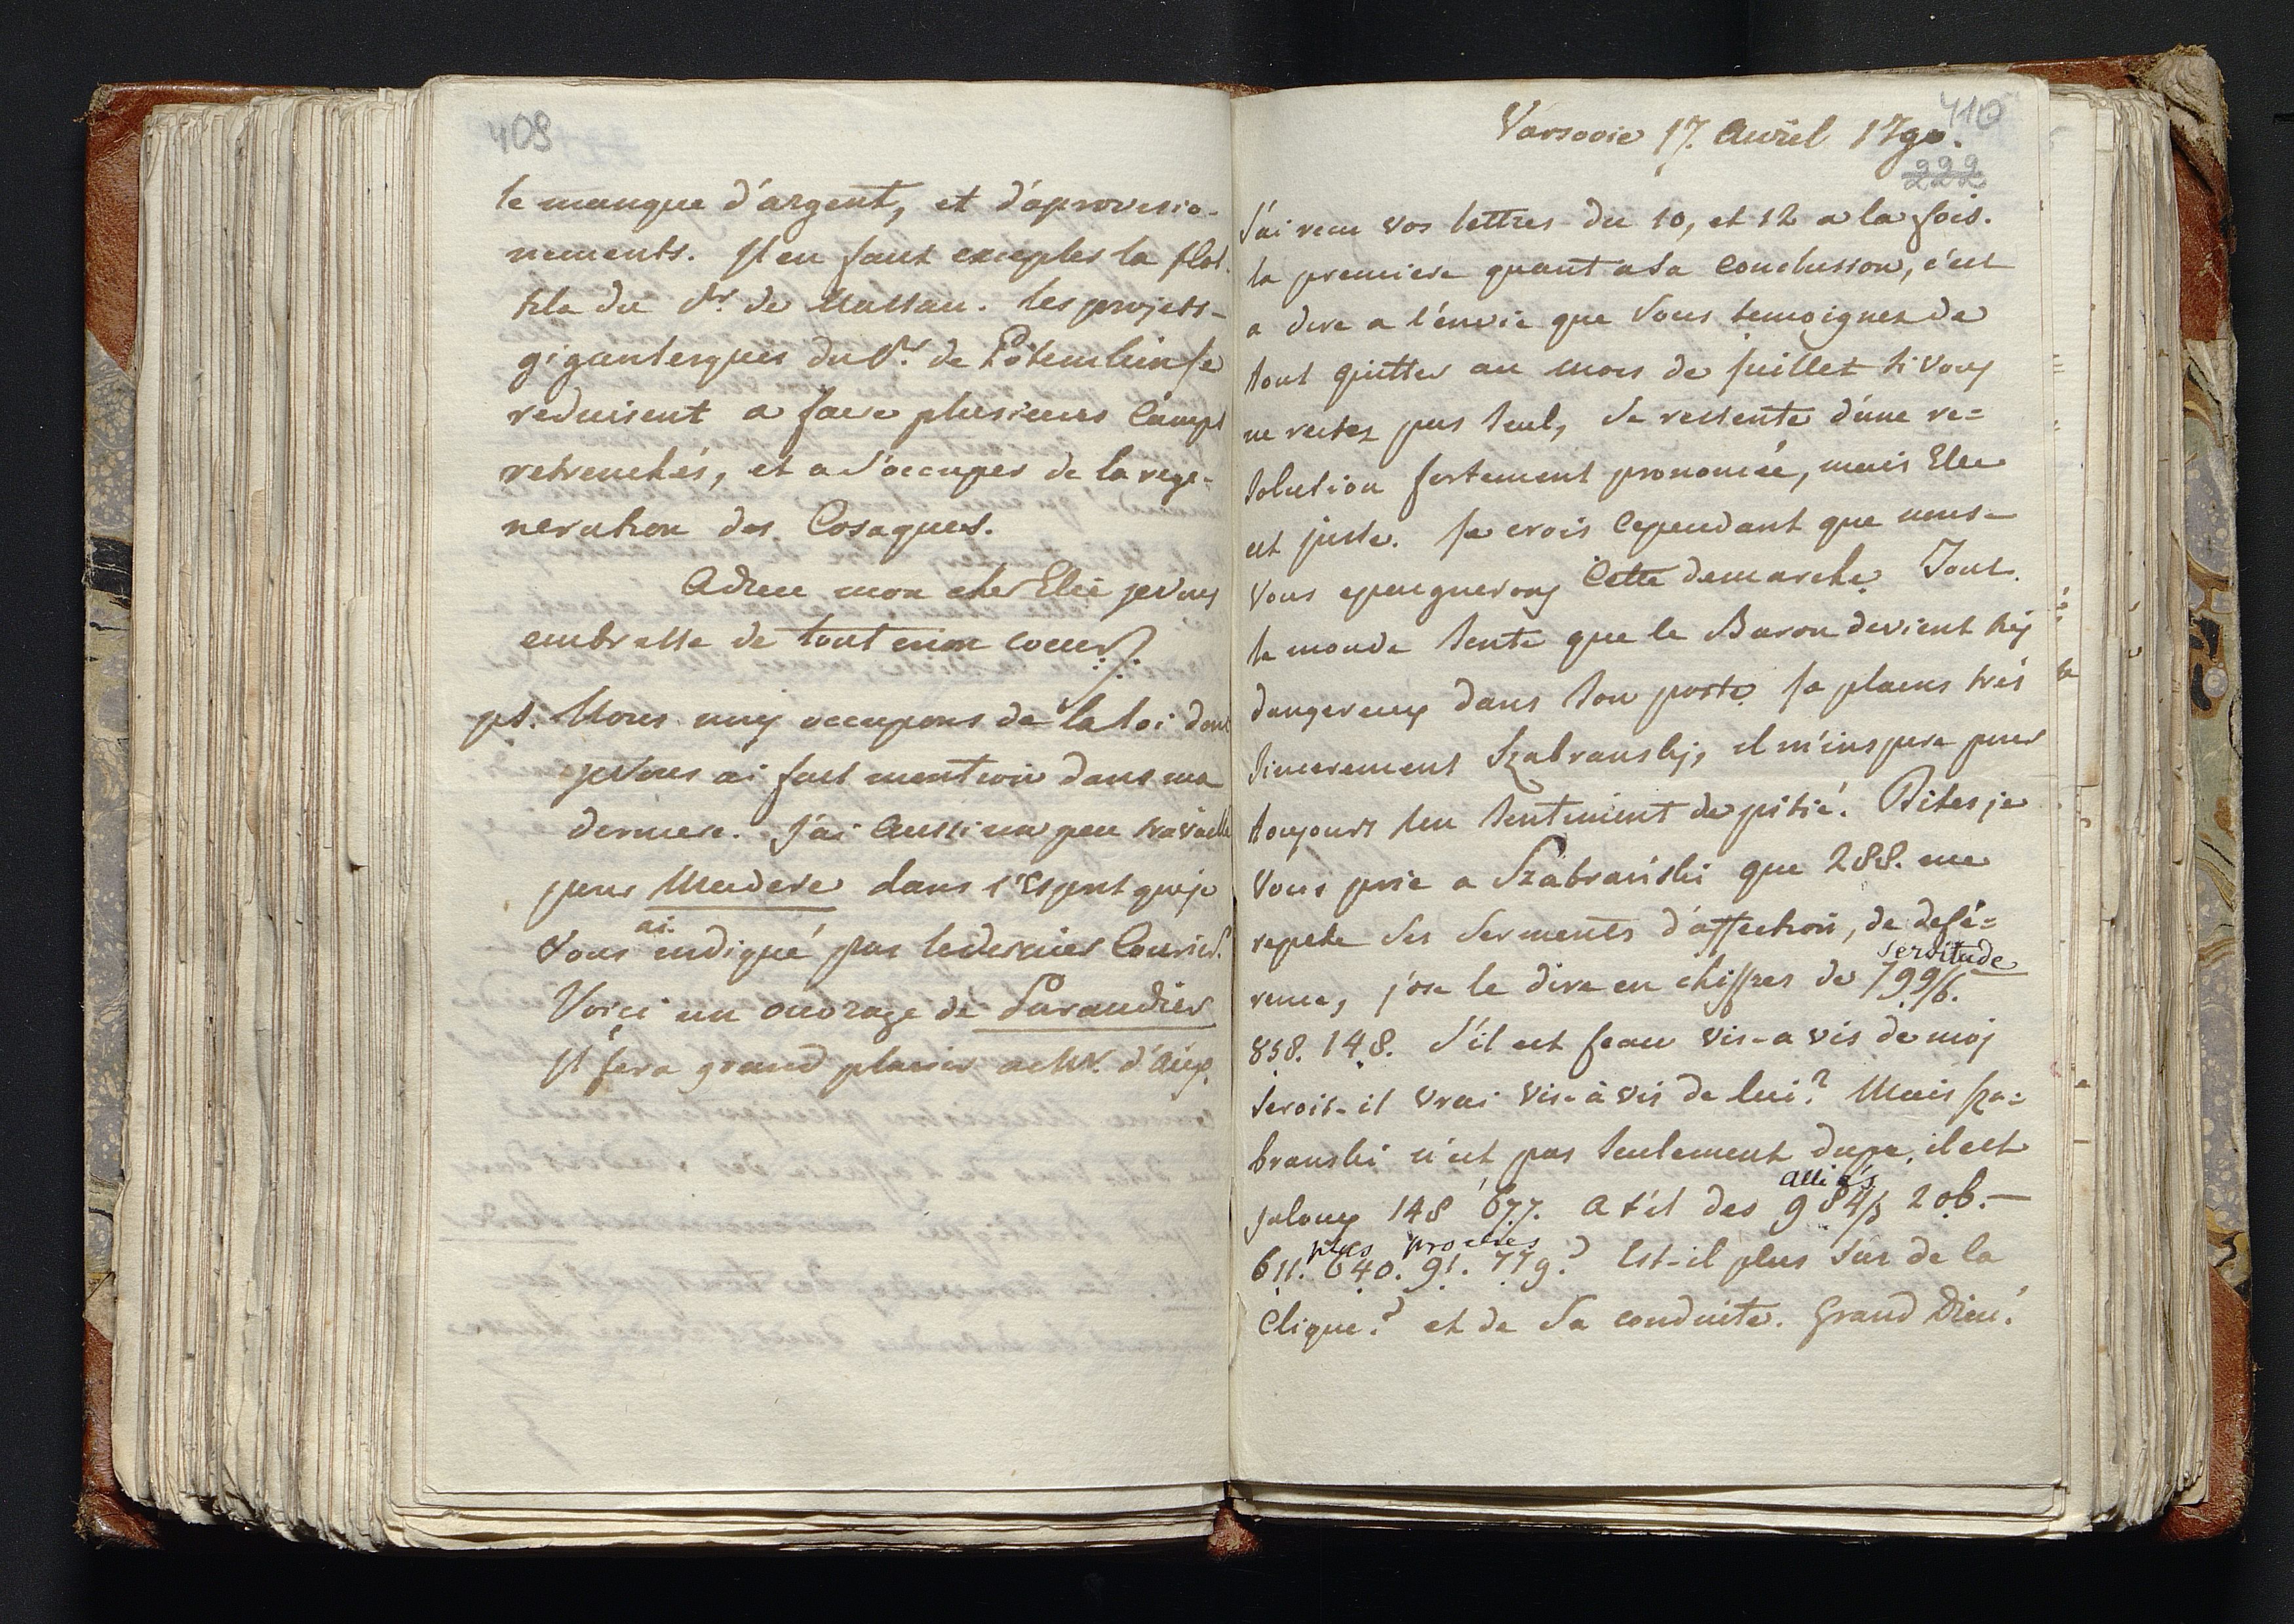 408
le manque d'argent, et d'aprovisio-
nements. Il en faut excepter la flot
tila du Pr. de Nassau. les projets-
gigantesques du Pr. de Potemkin se
reduisent a faire plusieurs Camps
retrenchés, et a s'occuper de la rege-
neration des Cosaques.
Adieu mon cher Elie je vous
embrasse de tout mon coeur
ps. Nous nous occupons de la loi dont
je vous ai fait mention dans ma
derniere. J'ai aussi un peu travaillé
pour Madere dans l'Esprit que je
ai
vous indiqué par le dernier Courier.
Voici un ouvrage de Parandier
Il fera grand plaisir a Mr. d'Aux.
410
Varsovie 17. Avril 1790.
222
J'ai recu vos lettres du 10, et 12 a la fois.
la premiere quant a sa conclusion, c'est
a dire a l'envie que Vous temoignez de
tout quitter au mois de Juillet si vous
ne restez pas seul, se ressente d'une re=
solution fortement prononcée, mais Elle
est juste. Je crois cependant que nous-
vous epargnerons Cette demarche. Tout.
le monde sente que le Baron devient très
dangereux dans son poste. Je plains très
sincerement Szabranskj, il m'inspire pour
toujours un sentiment de pitié. Dites je
vous prie a Szabrański que 288. me
repete ses serments d'affection, de defé=
servitude
rence, j'ose le dire en chiffres de 799/6.
858. 148. S'il est faux vis-a vis de moj
seroit-il vrai vis-à vis de lui? Mais Sza=
branski n'est pas seulement dupe, il est
alliés
jaloux 148 677. A t'il des 984/3 206.-
plus proches
611. 640. 91. 779.? Est-il plus sur de la
Clique? et de sa conduite. Grand Dieu!